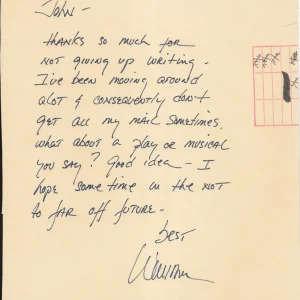 John -
Thanks so much for
not giving up writing -
I've been moving around
alot & consequently don't
get all my mail sometimes.
What about a play or musical
you say? Good idea - I
hope some time in the not
to far off future -
best